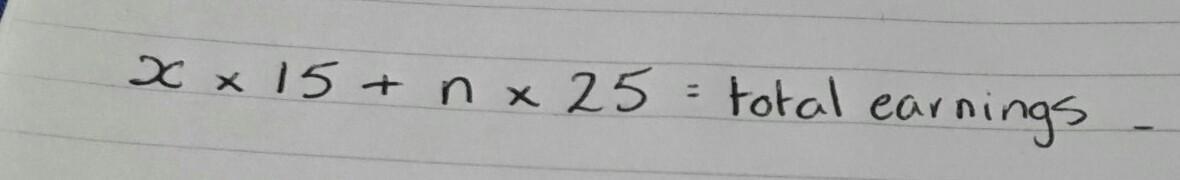 x × 15 + n × 25 = total earnings -